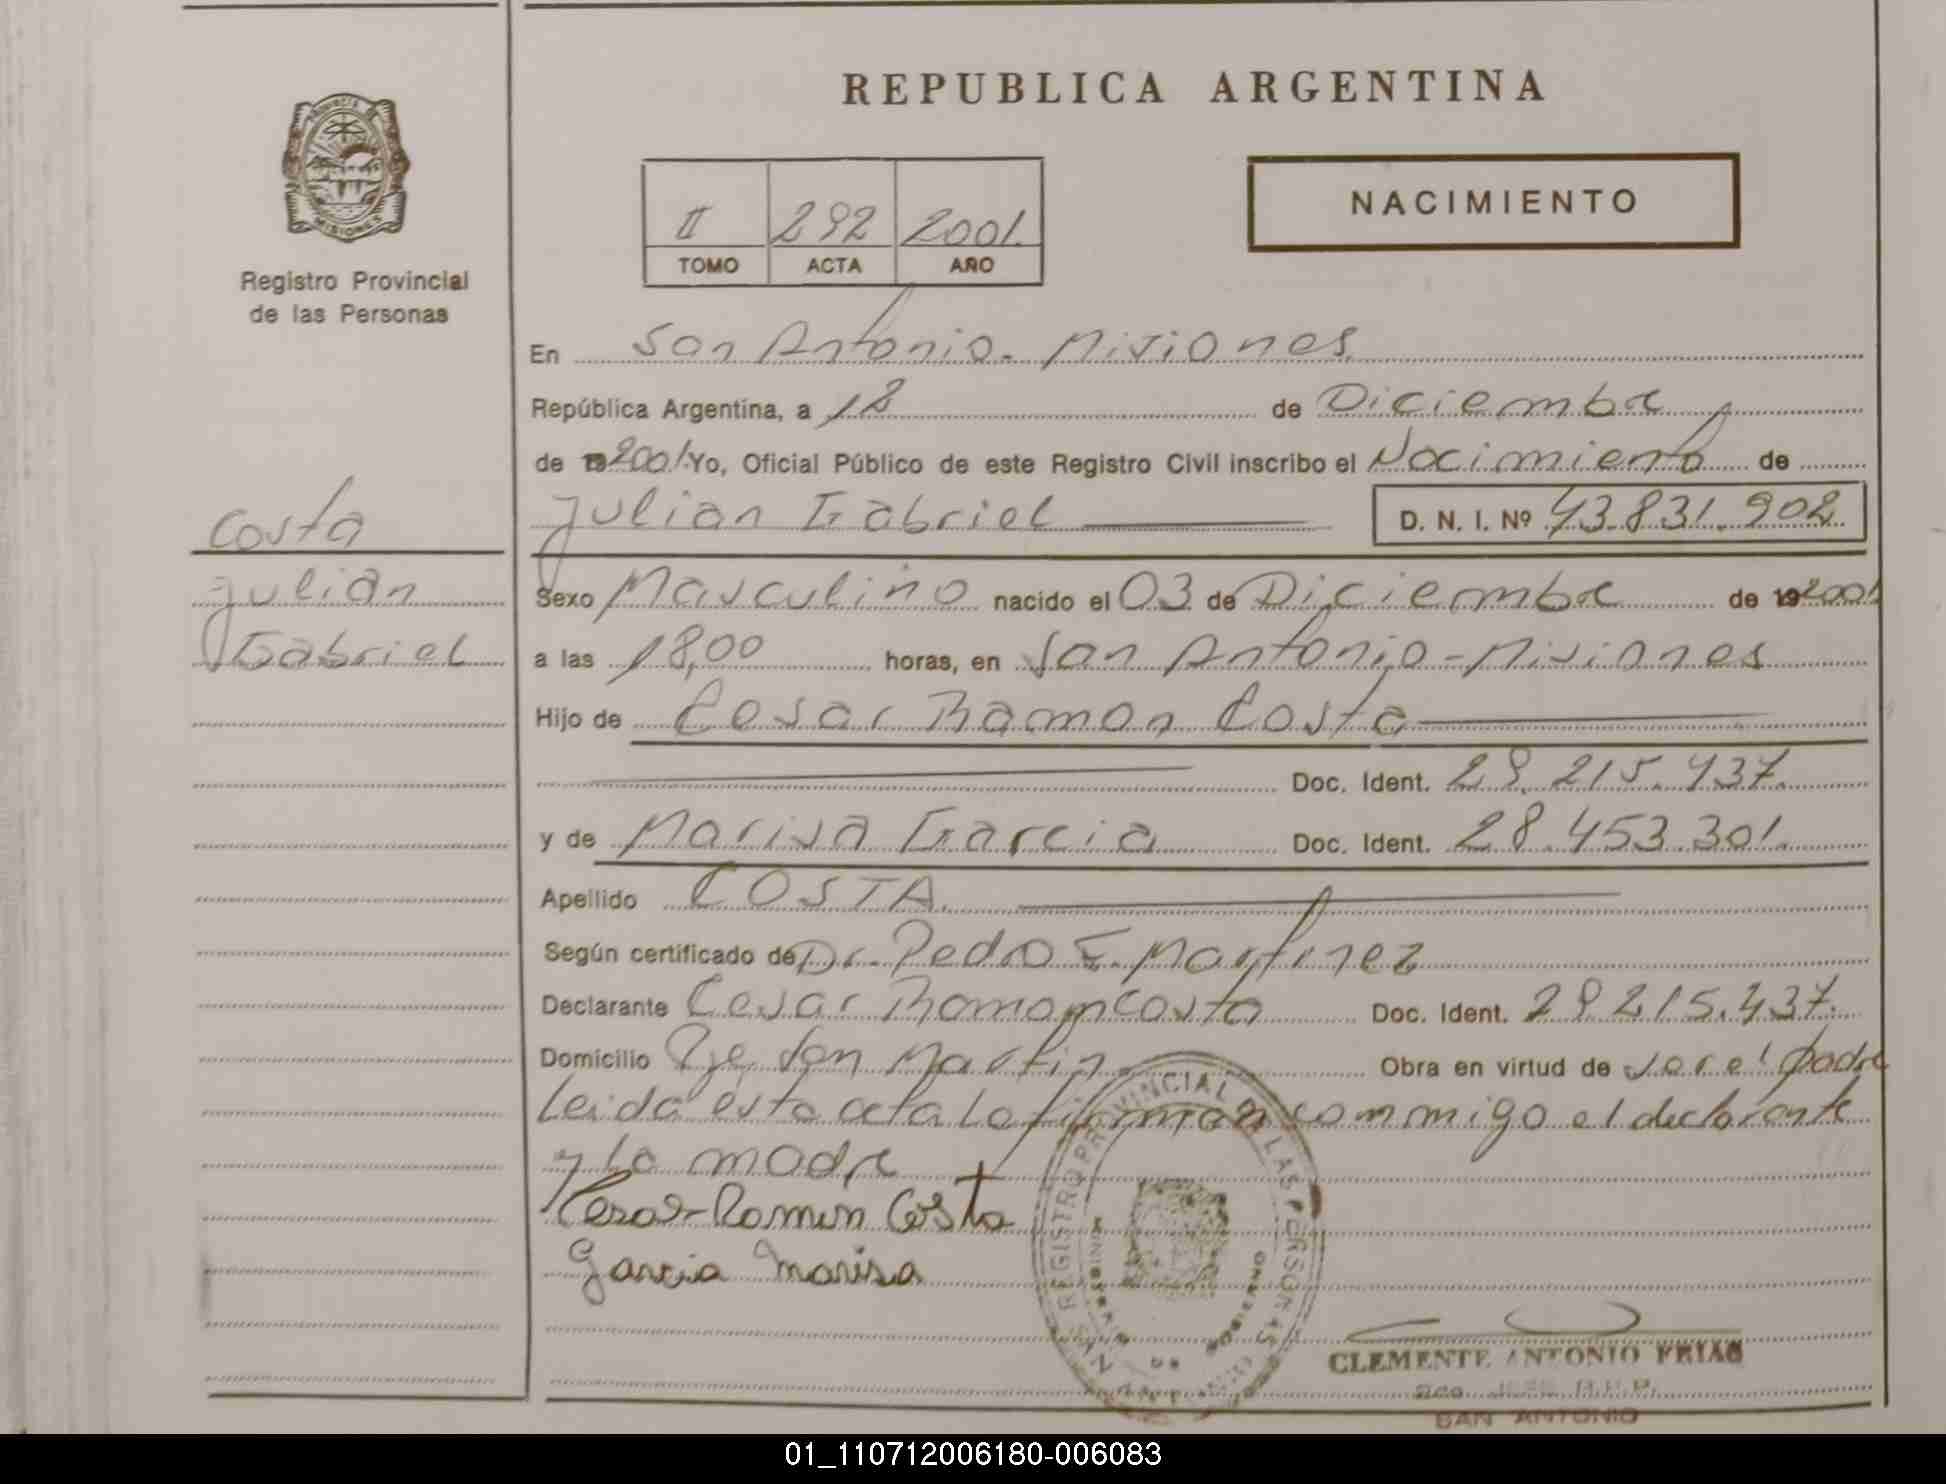 REPUBLICA ARGENTINA
PROVINCIA DE
MISIONES
Registro Provincial
de las Personas
II 292 2001.
TOMO ACTA AÑO
NACIMIENTO
En San Antonio - Misiones
República Argentina, a 18 de Diciembre
de 192001. Yo, Oficial Público de este Registro Civil inscribo el Nacimiento de
Julian Gabriel D. N. I. Nº 43.831.902
Costa
Julian
Gabriel
Sexo Masculino nacido el 03 de Diciembre de 192001
a las 18,00 horas, en San Antonio - Misiones
Hijo de Cesar Ramon Costa
Doc. Ident. 29.215.437.
y de Marisa Garcia Doc. Ident. 28.453.301.
Apellido COSTA
Según certificado de Dr. Pedro E. Martinez
Declarante Cesar Ramon Costa Doc. Ident. 29.215.437.
Domicilio Pje San Martin Obra en virtud de ser el padre
Leida esta acta La firman commigo el declarante
y La madre
Cesar Ramon Costa
Garcia Marisa
REGISTRO PROVINCIAL DE LAS PERSONAS
CLEMENTE ANTONIO FRIAS
SAN ANTONIO
01_110712006180-006083